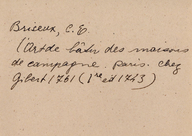 Briseux, C. E.
L'Art de bâtir des maisons
de campagne. Paris. chez
Gibert 1761 (1re ed 1743)